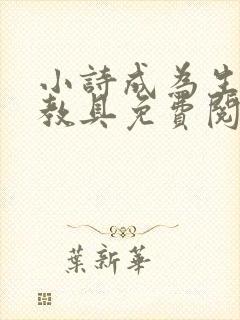 小詩成為生
教具免費閱
葉新華